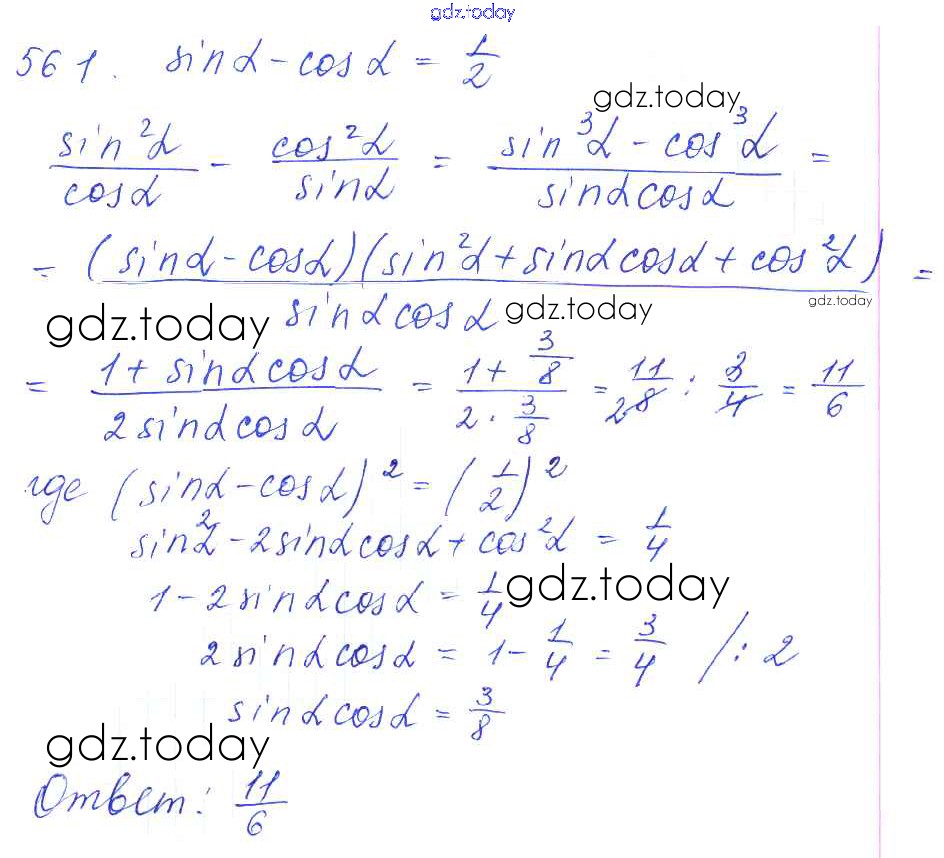 gdz.today
561. sinα - cosα = 1/2
gdz.today
sin²α/cosα - cos²α/sinα = (sin³α - cos³α)/(sinα cosα) =
= (sinα - cosα)(sin²α + sinα cosα + cos²α)/(sinα cosα) =
gdz.today gdz.today gdz.today
= (1 + sinα cosα)/(2 sinα cosα) = (1 + 3/8)/(2 · 3/8) = 11/8 : 3/4 = 11/6
где (sinα - cosα)² = (1/2)²
sin²α - 2sinα cosα + cos²α = 1/4
1 - 2sinα cosα = 1/4 gdz.today
2sinα cosα = 1 - 1/4 = 3/4 /: 2
sinα cosα = 3/8
gdz.today
Ответ: 11/6